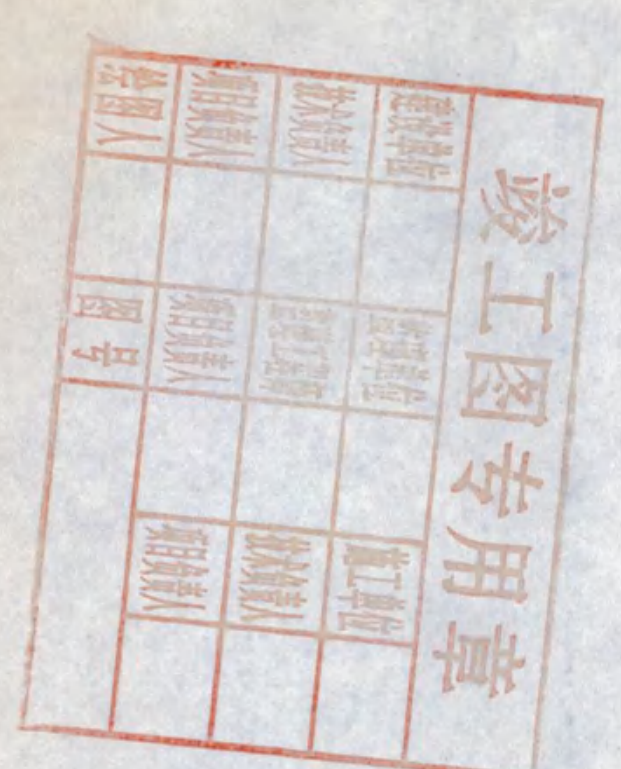 竣工图专用章
建设单位 监理单位 施工单位
技术负责人 技术负责人
项目负责人 项目负责人 项目负责人
绘图人 图号